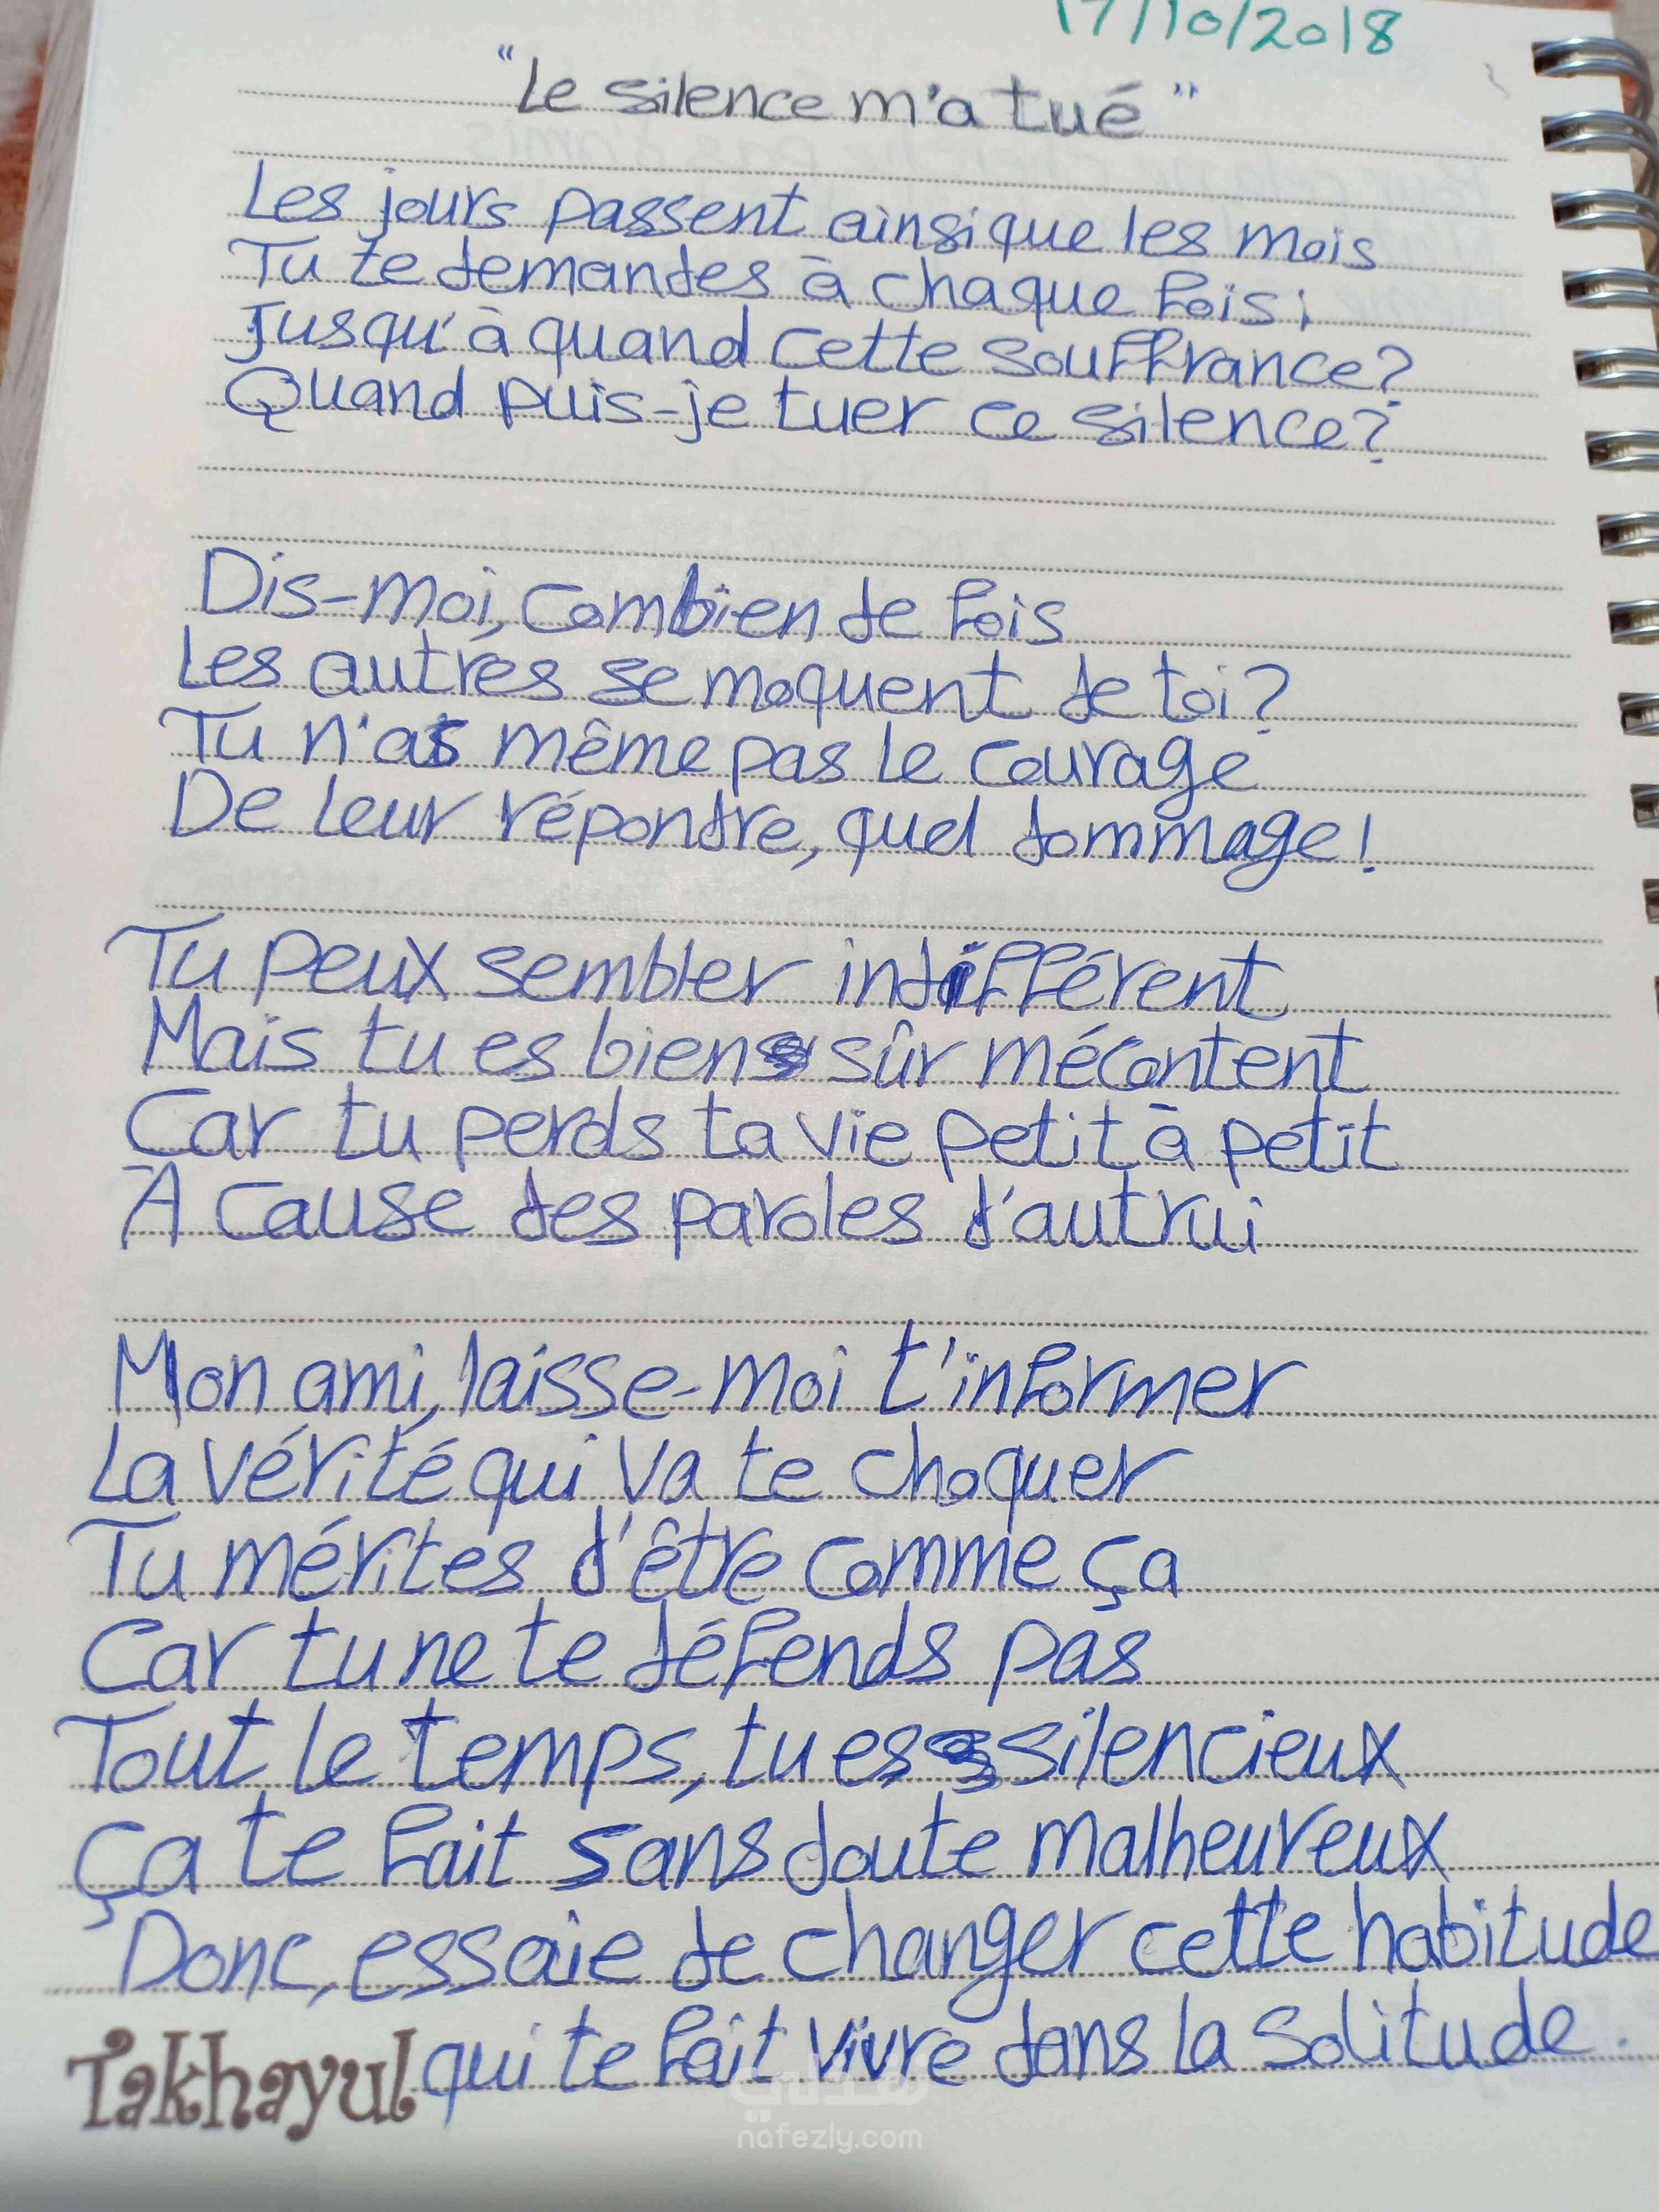 17/10/2018
"Le silence m'a tué"
Les jours passent ainsi que les mois
Tu te demandes à chaque fois;
Jusqu'à quand cette souffrance?
Quand puis-je tuer ce silence?
Dis-moi, combien de fois
Les autres se moquent de toi?
Tu n'as même pas le courage
De leur répondre, quel dommage!
Tu peux sembler indifférent
Mais tu es bien sûr mécontent
Car tu perds ta vie petit à petit
À cause des paroles d'autrui
Mon ami, laisse-moi t'informer
La vérité qui va te choquer
Tu mérites d'être comme ça
Car tu ne te défends pas
Tout le temps, tu es silencieux
Ça te fait sans doute malheureux
Donc, essaie de changer cette habitude
qui te fait vivre dans la solitude.
Takhayul
nafezly.com